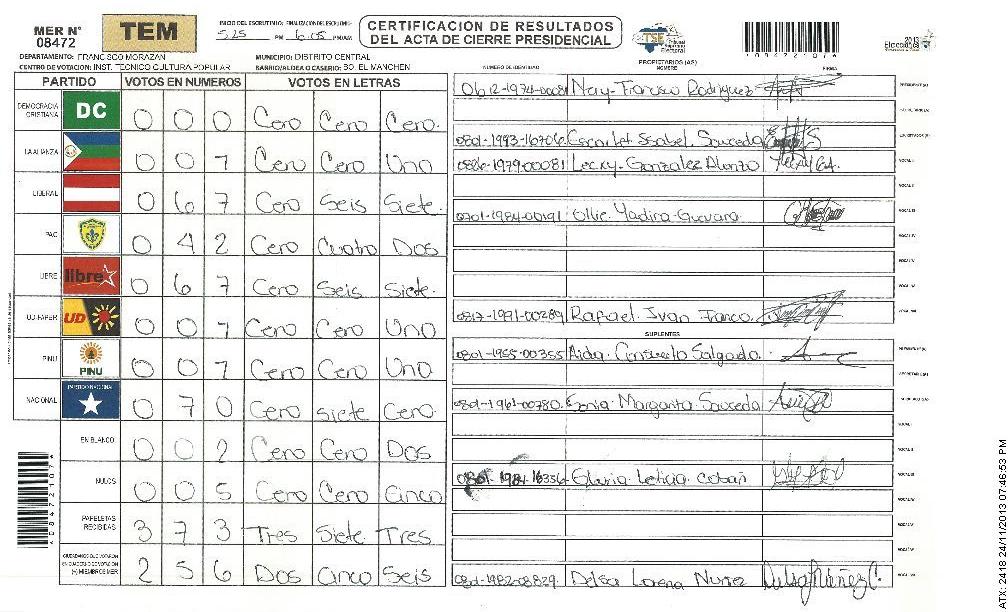 MER N° 08472
TEM
INICIO DEL ESCRUTINIO: 5:25 PM
FINALIZACION DEL ESCRUTINIO: 6:05 PM/AM
CERTIFICACION DE RESULTADOS
DEL ACTA DE CIERRE PRESIDENCIAL
TSE Tribunal Supremo Electoral
2013 Elecciones
DEPARTAMENTO: FRANCISCO MORAZAN
MUNICIPIO: DISTRITO CENTRAL
CENTRO DE VOTACION: INST. TECNICO CULTURA POPULAR
BARRIO/ALDEA O CASERIO: BO. EL MANCHEN
PARTIDO VOTOS EN NUMEROS VOTOS EN LETRAS
DEMOCRACIA CRISTIANA DC 0 0 0 Cero Cero Cero.
LA ALIANZA 0 0 1 Cero Cero Uno
LIBERAL 0 6 7 Cero Seis Siete.
PAC 0 4 2 Cero Cuatro Dos
LIBRE libre 0 6 7 Cero Seis Siete.
UD-FAPER UD 0 0 1 Cero Cero Uno
PINU PINU 0 0 1 Cero Cero Uno
NACIONAL PARTIDO NACIONAL 0 7 0 Cero siete Cero.
EN BLANCO 0 0 2 Cero Cero Dos
NULOS 0 0 5 Cero Cero Cinco
PAPELETAS RECIBIDAS 3 7 3 Tres Siete Tres
CIUDADANOS QUE VOTARON EN CUADERNO DE VOTACION (+) MIEMBROS MER 2 5 6 Dos Cinco Seis
NUMERO DE IDENTIDAD
PROPIETARIOS (AS)
NOMBRE
FIRMA
0612-1974-00081 Nery Francisco Rodriguez PRESIDENTE(A)
SECRETARIO(A)
0801-1993-16706 Isabel Sauceda ESCRUTADOR(A)
0826-1979-00081 Gonzalez Alonzo VOCAL I
VOCAL II
0801-1984-00191 Ollie Yadira Guevara VOCAL III
VOCAL IV
VOCAL V
VOCAL VI
0317-1991-00289 Rafael Ivan VOCAL VII
SUPLENTES
0801-1955-00355 Aida Consuelo Salgado. PRESIDENTE(A)
SECRETARIO(A)
0801-1961-00780 Sonia Margarita Sauceda ESCRUTADOR(A)
VOCAL I
VOCAL II
0801-1984-16356 Gloria Leticia VOCAL III
VOCAL IV
VOCAL V
VOCAL VI
0801-1982-08829 Delsa Lorena Nuñez Delsa Nuñez C.
ATX: 2418 24/11/2013 07:46:53 PM